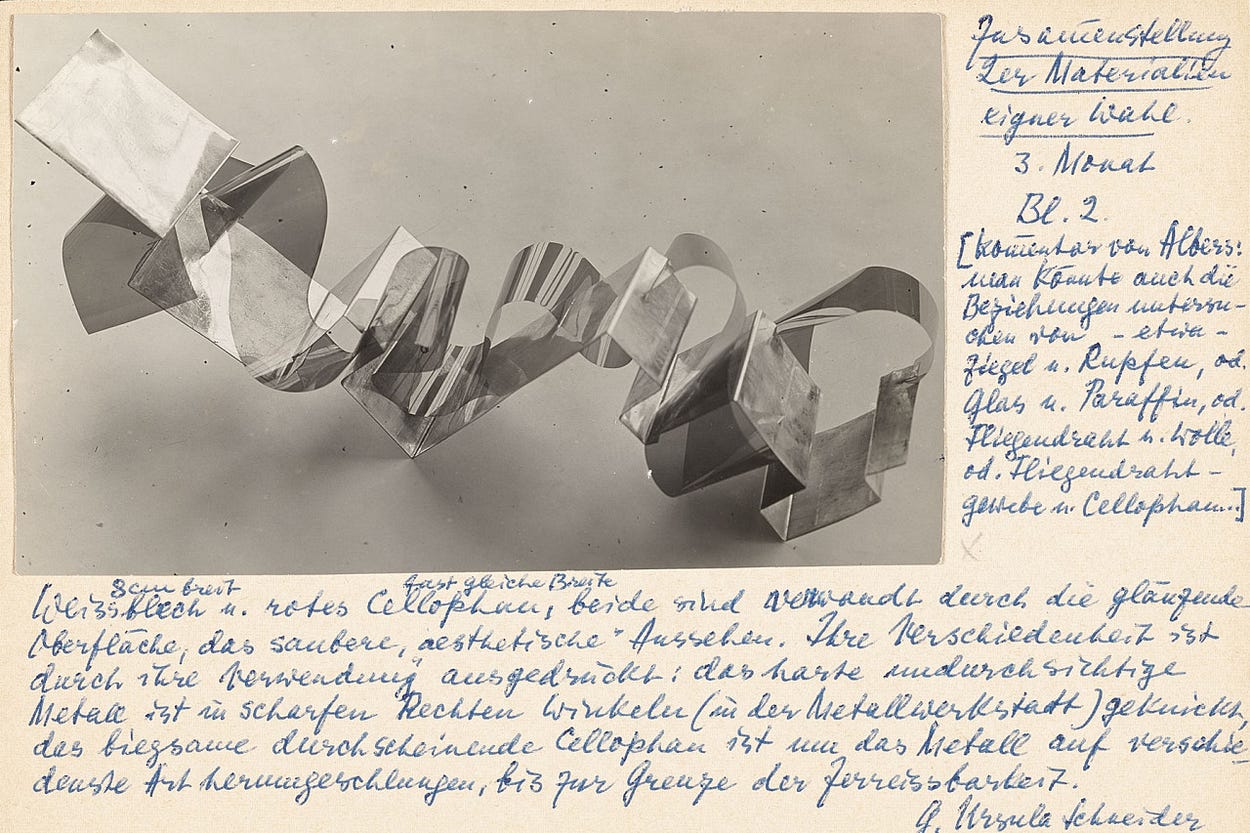 Zusam̅enstellung
2er Materialien
eigner Wahl.
3. Monat
Bl. 2.
[Kom̅entar von Albers:
man könnte auch die
Beziehungen untersu-
chen von - etwa -
Ziegel u. Rupfen, od.
Glas u. Paraffin, od.
Fliegendraht u. Wolle,
od. Fliegendraht-
gewebe u. Cellophan..]
8cm breit fast gleiche Breite
Weissblech u. rotes Cellophan, beide sind verwandt durch die glänzende
Oberfläche, das saubere, „aesthetische" Aussehen. Ihre Verschiedenheit ist
durch ihre Verwendung ausgedrückt: das harte undurchsichtige
Metall ist in scharfen Rechten Winkeln (in der Metallwerkstatt) geknickt,
das biegsame durchscheinende Cellophan ist um das Metall auf verschie-
denste Art herumgeschlungen, bis zur Grenze der Zerreissbarkeit.
G. Ursula Schneider